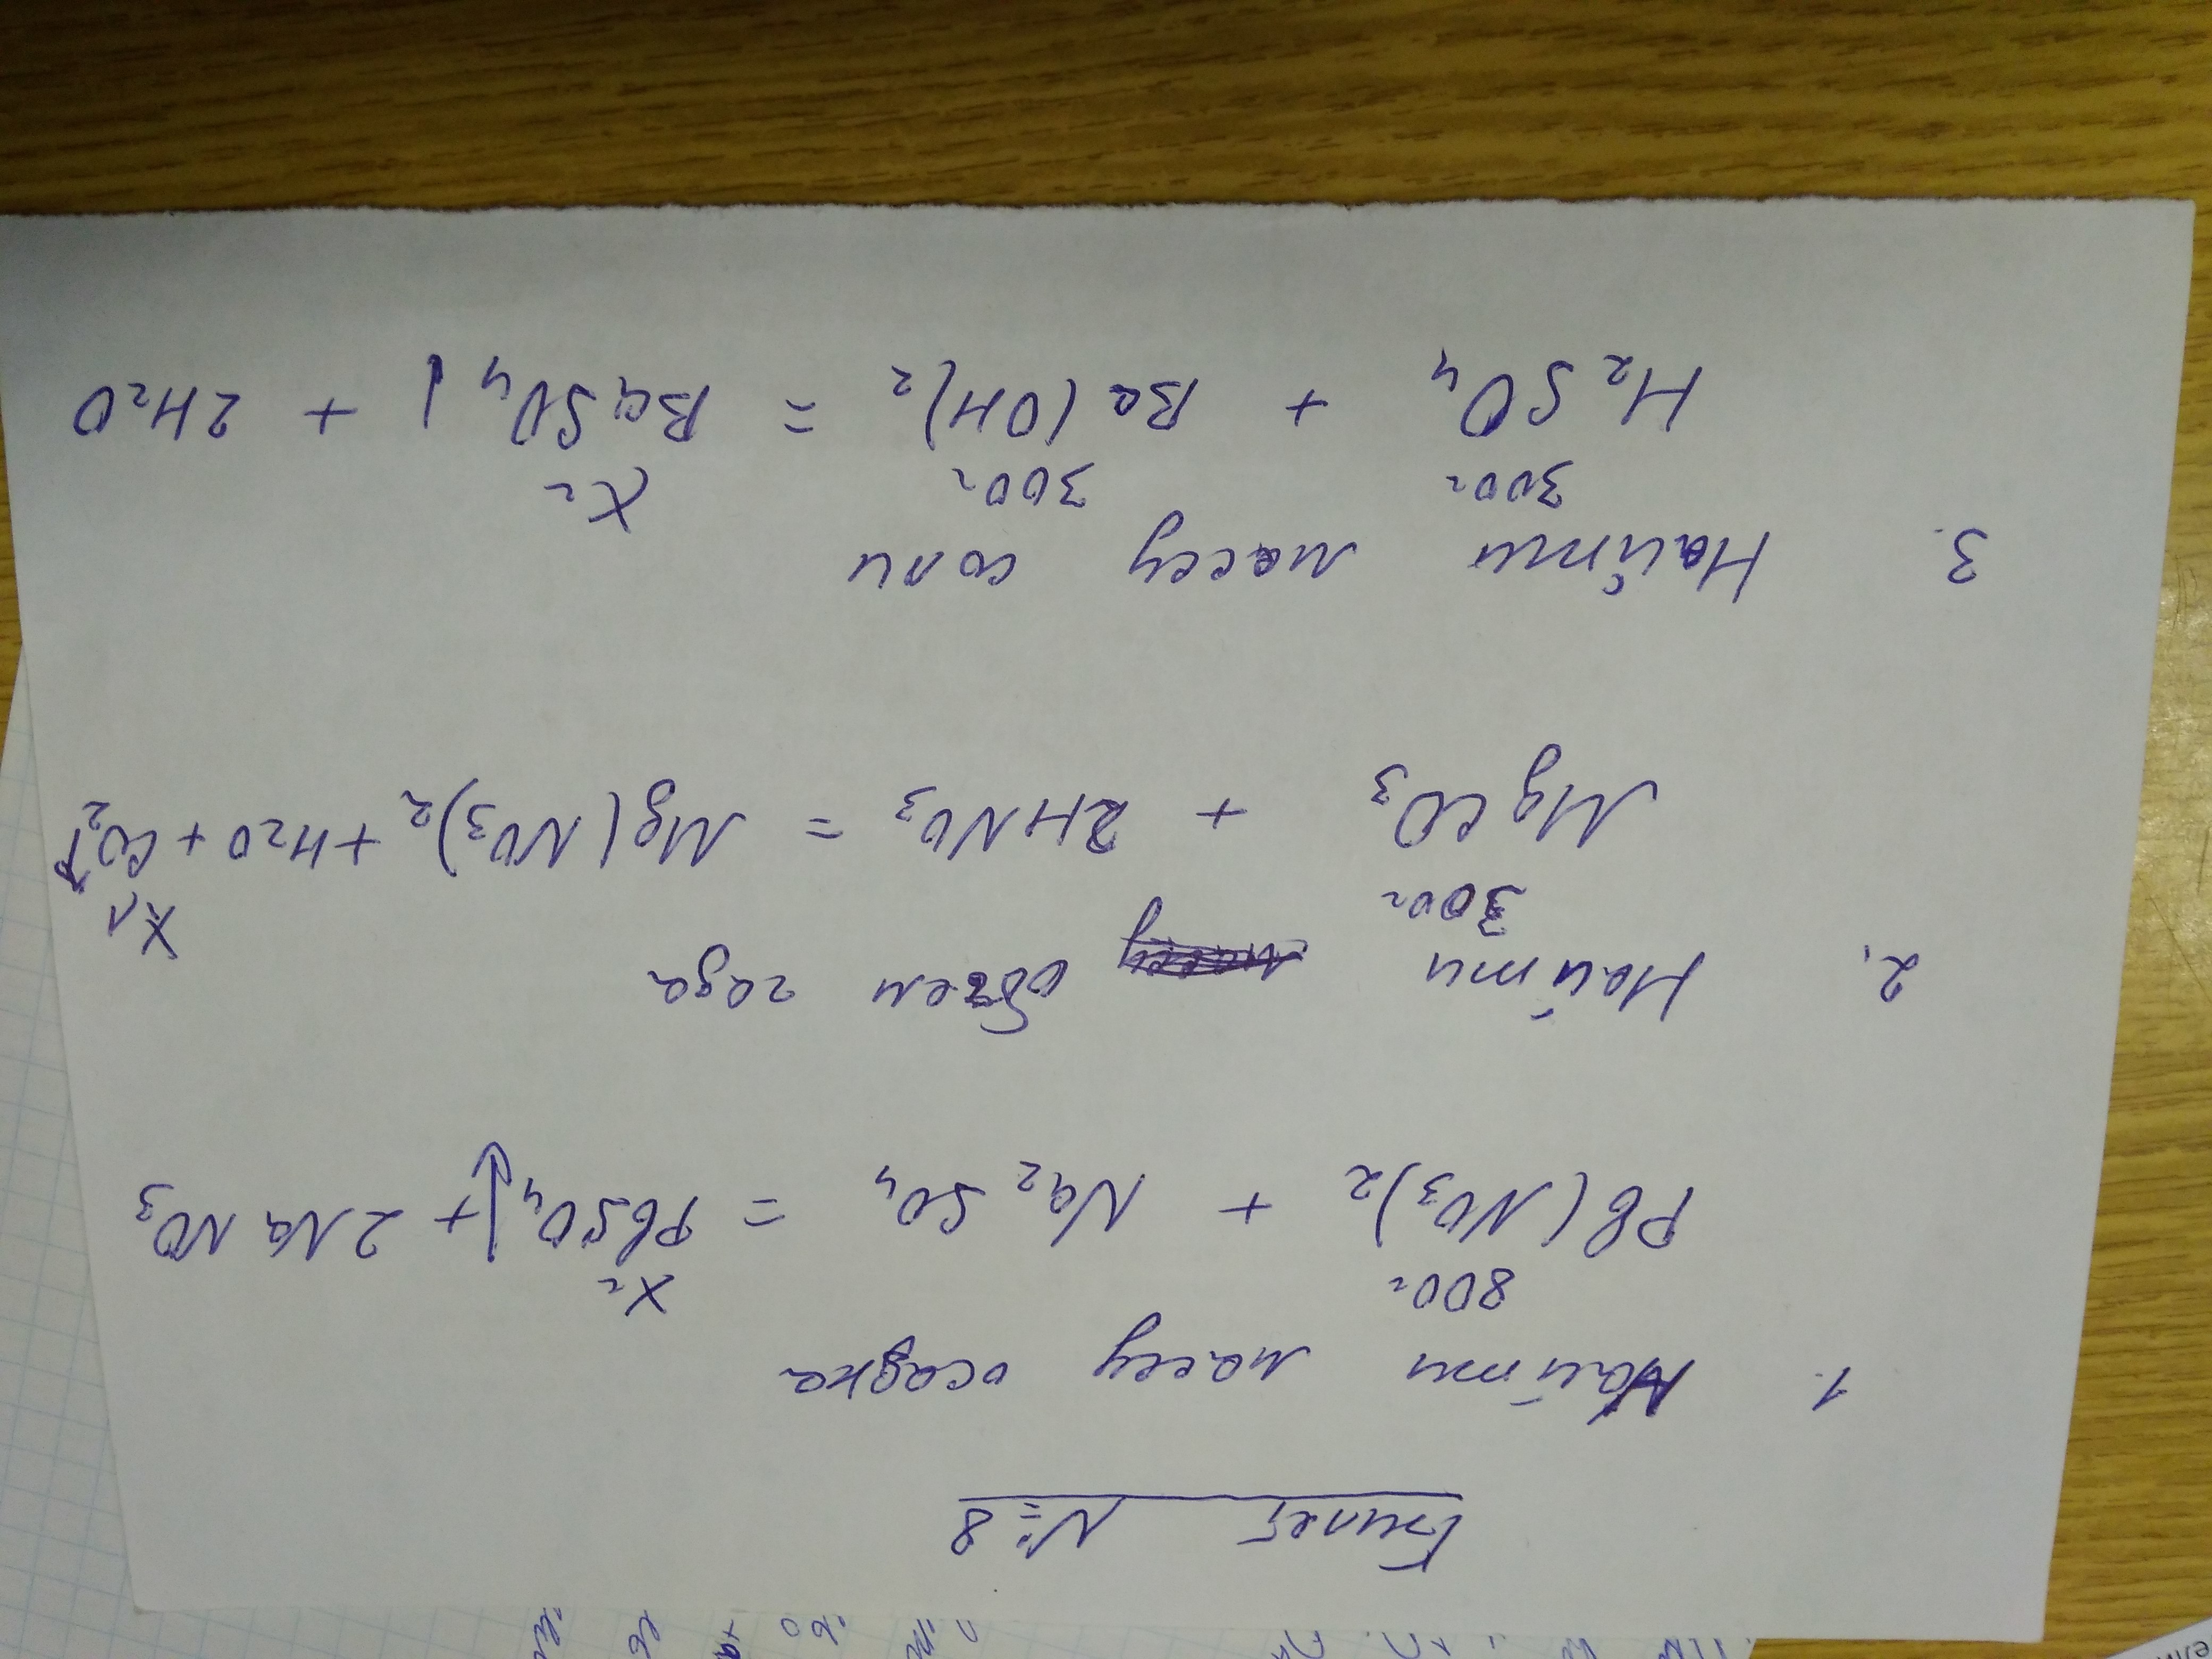 Билет № 8
1. Найти массу осадка
800г Xг
Pb(NO3)2 + Na2SO4 = PbSO4↓ + 2NaNO3
2. Найти объем газа
300г Xл
MgCO3 + 2HNO3 = Mg(NO3)2 + H2O + CO2↑
3. Найти массу соли
300г 300г Xг
H2SO4 + Ba(OH)2 = BaSO4↓ + 2H2O